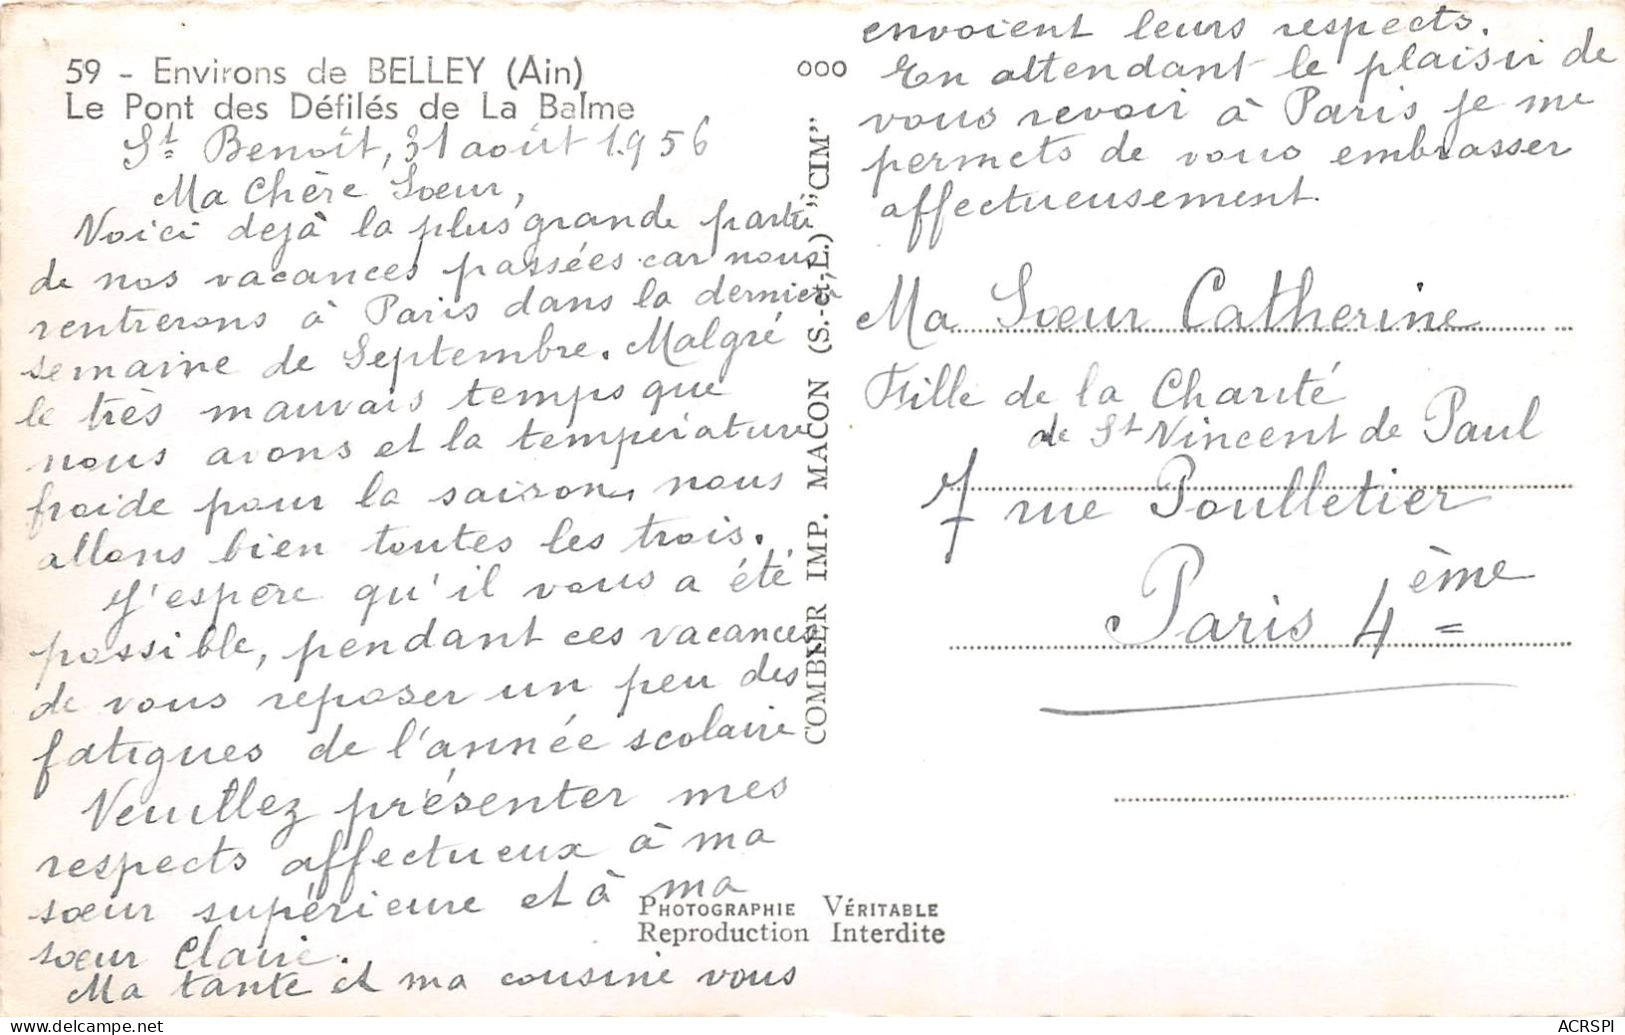 59 - Environs de BELLEY (Ain)
Le Pont des Défilés de La Balme
St Benoît, 31 août 1956
Ma Chère Soeur,
Voici dejà la plus grande partie
de nos vacances passées car nous
rentrerons à Paris dans la dernière
semaine de Septembre. Malgré
le très mauvais temps que
nous avons et la température
froide pour la saison, nous
allons bien toutes les trois.
J'espère qu'il vous a été
possible, pendant ces vacances
de vous reposer un peu des
fatigues de l'année scolaire
Veuillez présenter mes
respects affectueux à ma
soeur supérieure et à ma
soeur Claire.
Ma tante et ma cousine vous
envoient leurs respects.
En attendant le plaisir de
vous revoir à Paris je me
permets de vous embrasser
affectueusement.
000
COMBIER IMP. MACON (S.-et-L.) "CIM"
Ma Soeur Catherine
Fille de la Charité
de St Vincent de Paul
7 rue Poulletier
Paris 4ème
PHOTOGRAPHIE VÉRITABLE
Reproduction Interdite
ACRSPI